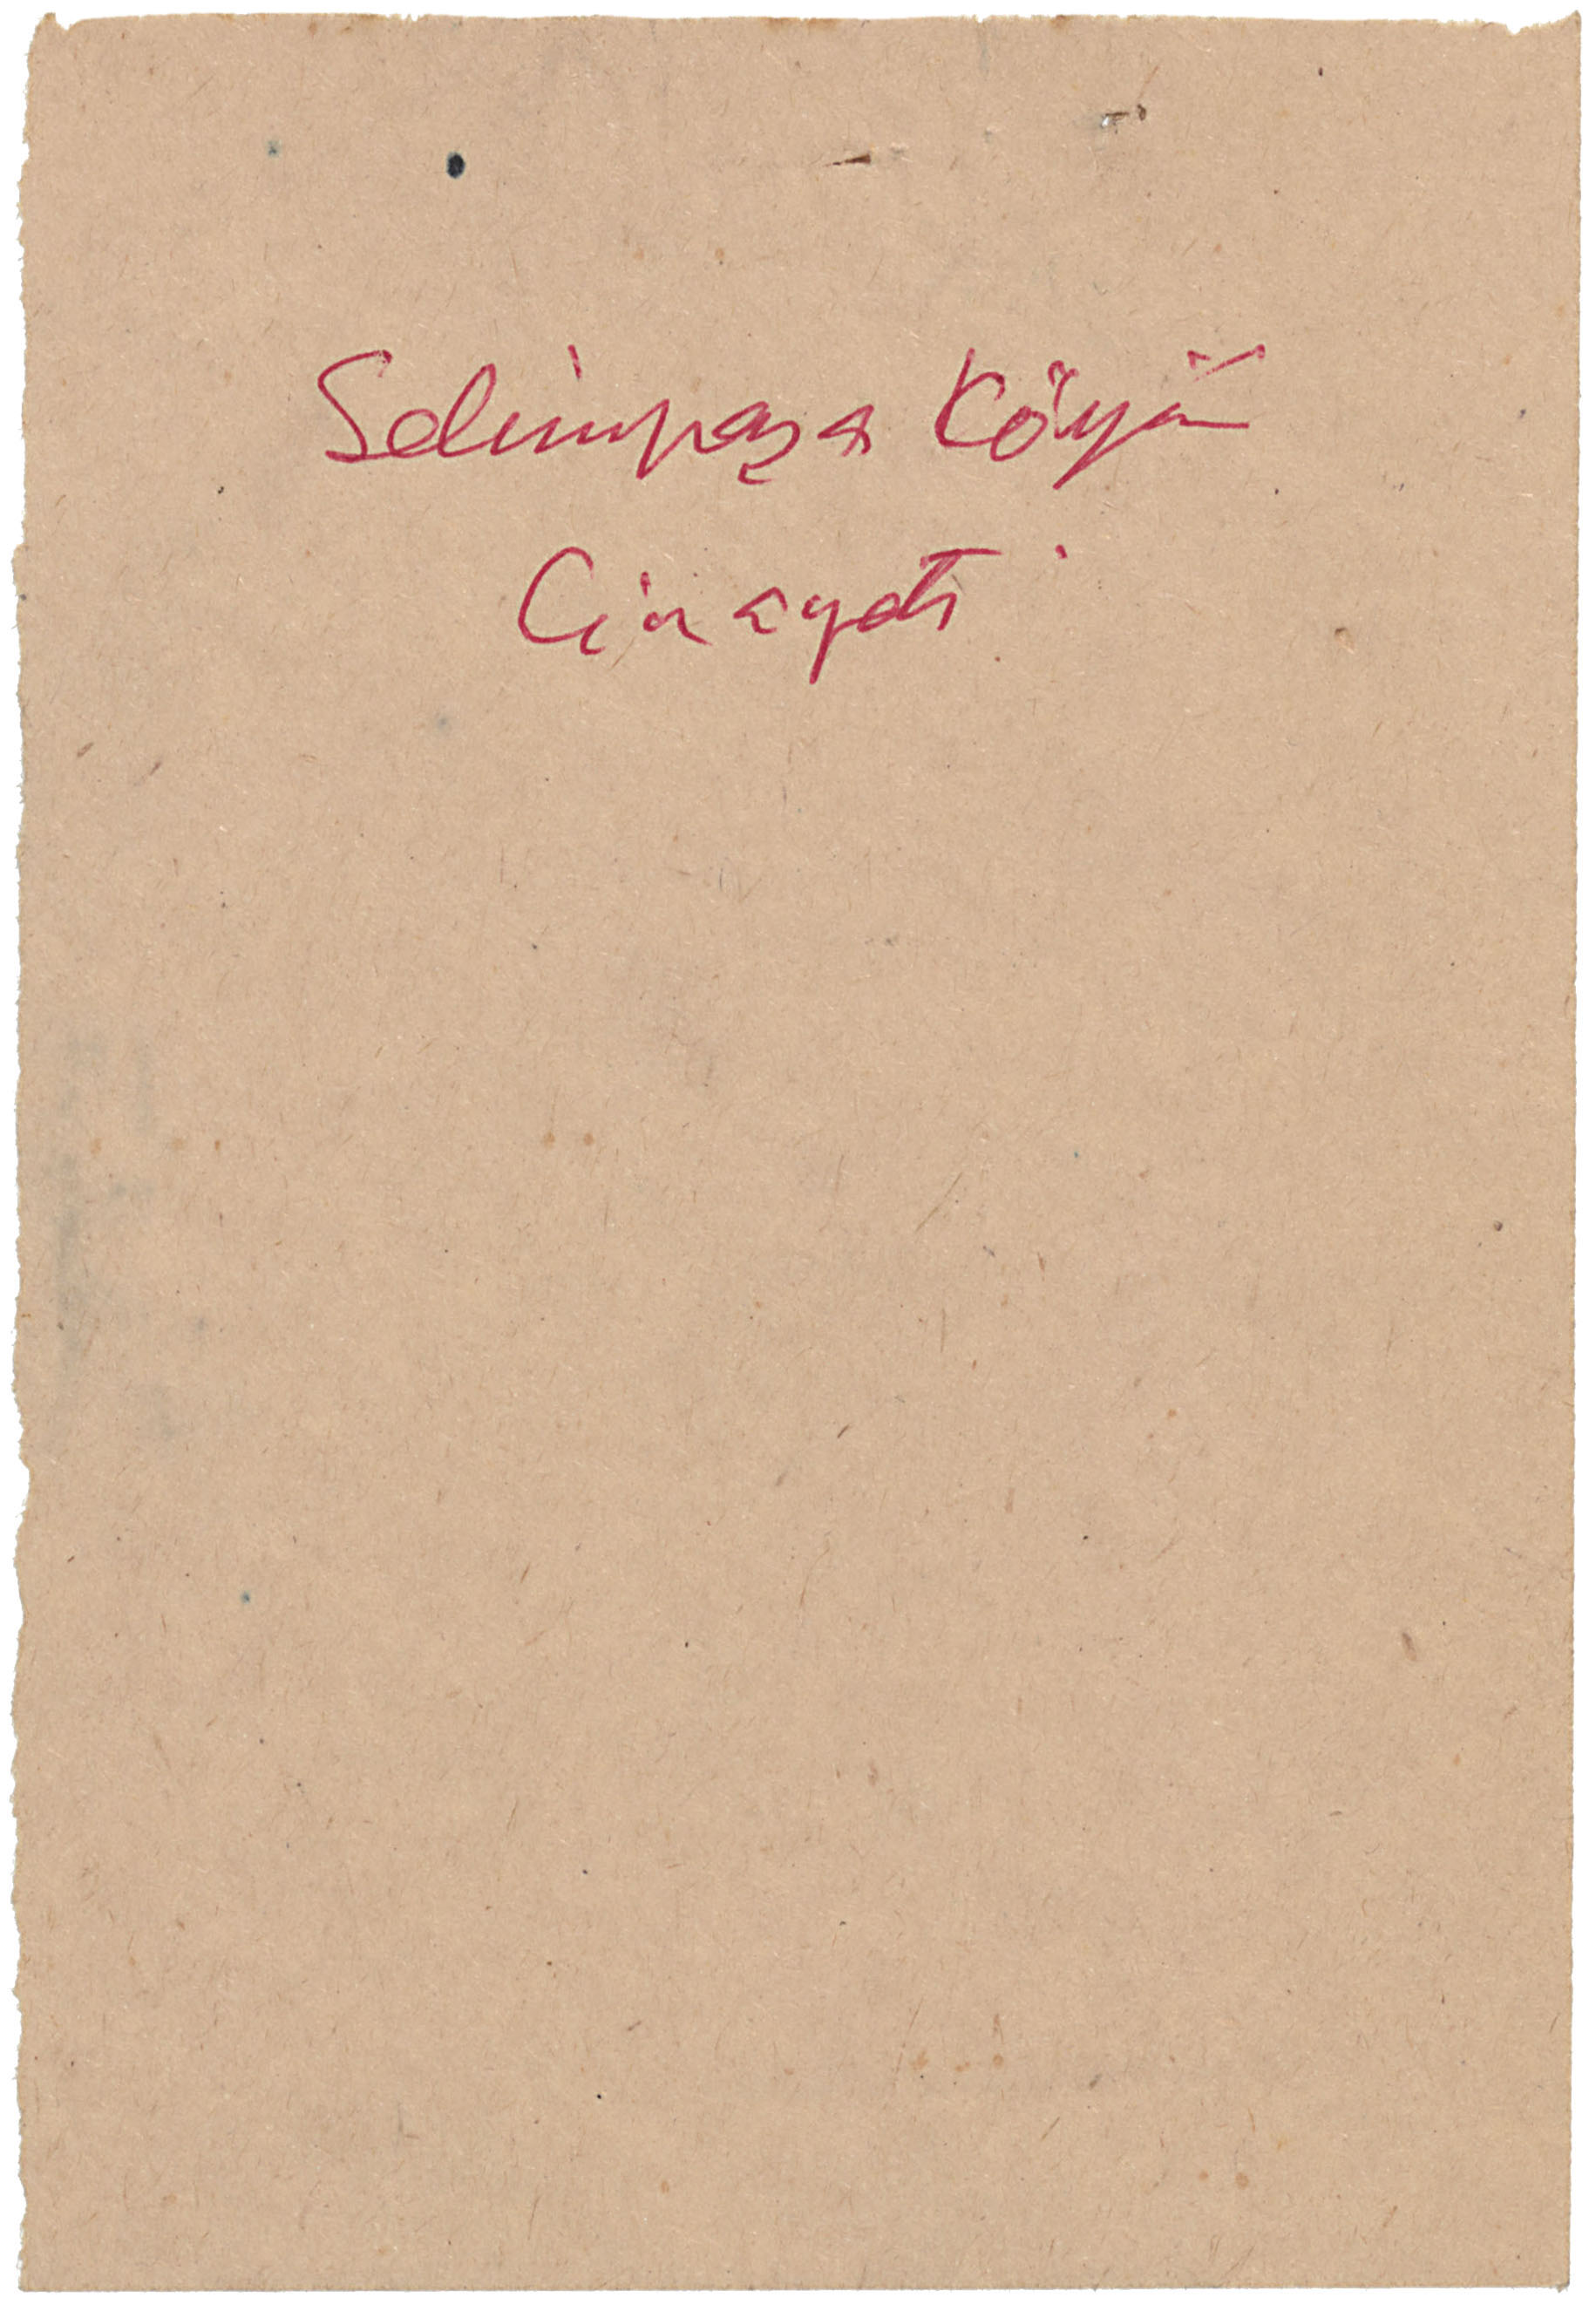 Selimpaşa Köyü
Cinayeti